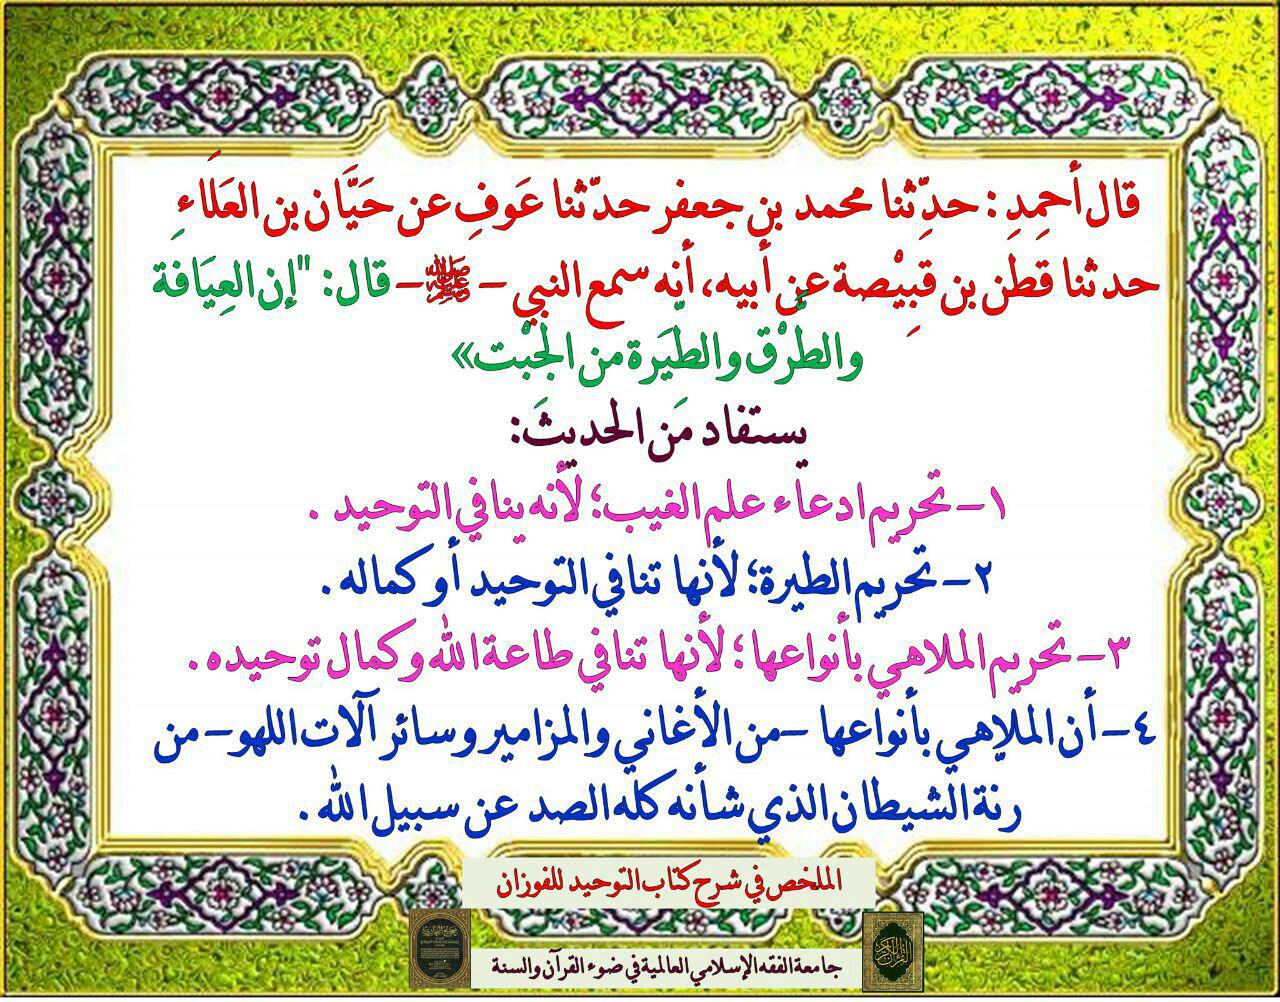 قال أحمد : حدّثنا محمد بن جعفر حدّثنا عَوف عن حَيَّان بن العَلَاء
حدثنا قَطَن بن قَبِيْصة عن أبيه، أنه سمع النبي - ﷺ - قال: "إن العِيَافة
والطَّرْق والطِّيَرة من الجِبْت»
يستفاد من الحديث:
١- تحريم ادعاء علم الغيب؛ لأنه ينافي التوحيد .
٢- تحريم الطيرة؛ لأنها تنافي التوحيد أو كماله .
٣- تحريم الملاهي بأنواعها ؛ لأنها تنافي طاعة الله وكمال توحيده .
٤- أن الملاهي بأنواعها -من الأغاني والمزامير وسائر آلات اللهو- من
رنة الشيطان الذي شأنه كله الصد عن سبيل الله .
الملخص في شرح كتاب التوحيد للفوزان
جامعة الفقه الإسلامي العالمية في ضوء القرآن والسنة
صحيح البخاري
القرآن الكريم